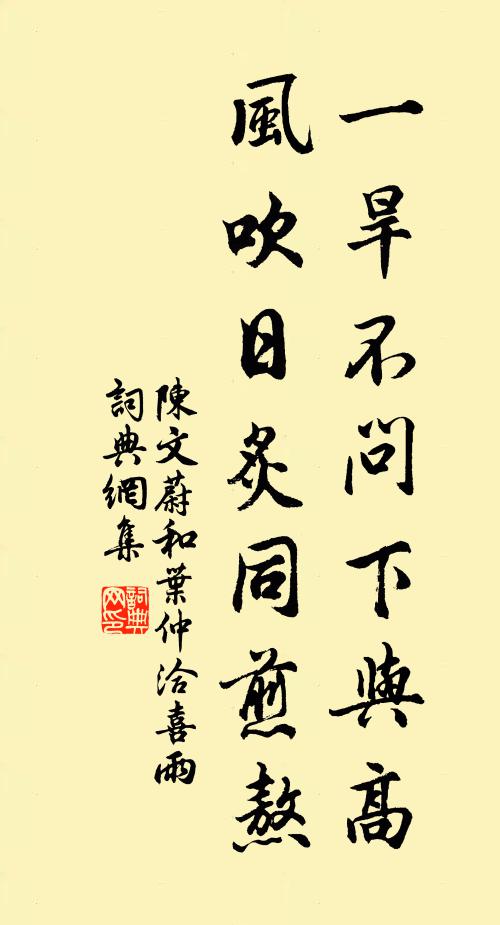 一旱不問下與高
風吹日炙同煎熬
陳文蔚和葉仲洽喜雨
詞典網集
詞典网印